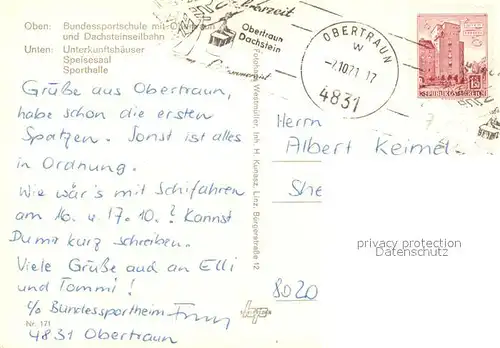 Oben: Bundessportschule mit
und Dachsteinseilbahn
Unten: Unterkunftshäuser
Speisesaal
Sporthelle
Obertraun
Dachstein
OBERTRAUN
-7.10.71 17
4831
REPUBLIK ÖSTERREICH
Grüße aus Obertraun,
habe schon die ersten
Spatzen. Sonst ist alles
in Ordnung.
Wie wär's mit Schifahren
am 16. u. 17. 10.? Kannst
Du mir kurz schreiben.
Viele Grüße auch an Elli
und Tommi!
c/o Bundessportheim
4831 Obertraun
Nr. 171
Westmüller, Inh. H. Kunasz, Linz, Bürgerstraße 12
Herrn
Albert Keimel
8020
privacy protection
WWW.ANSICHTSKARTEN-CENTER.DE